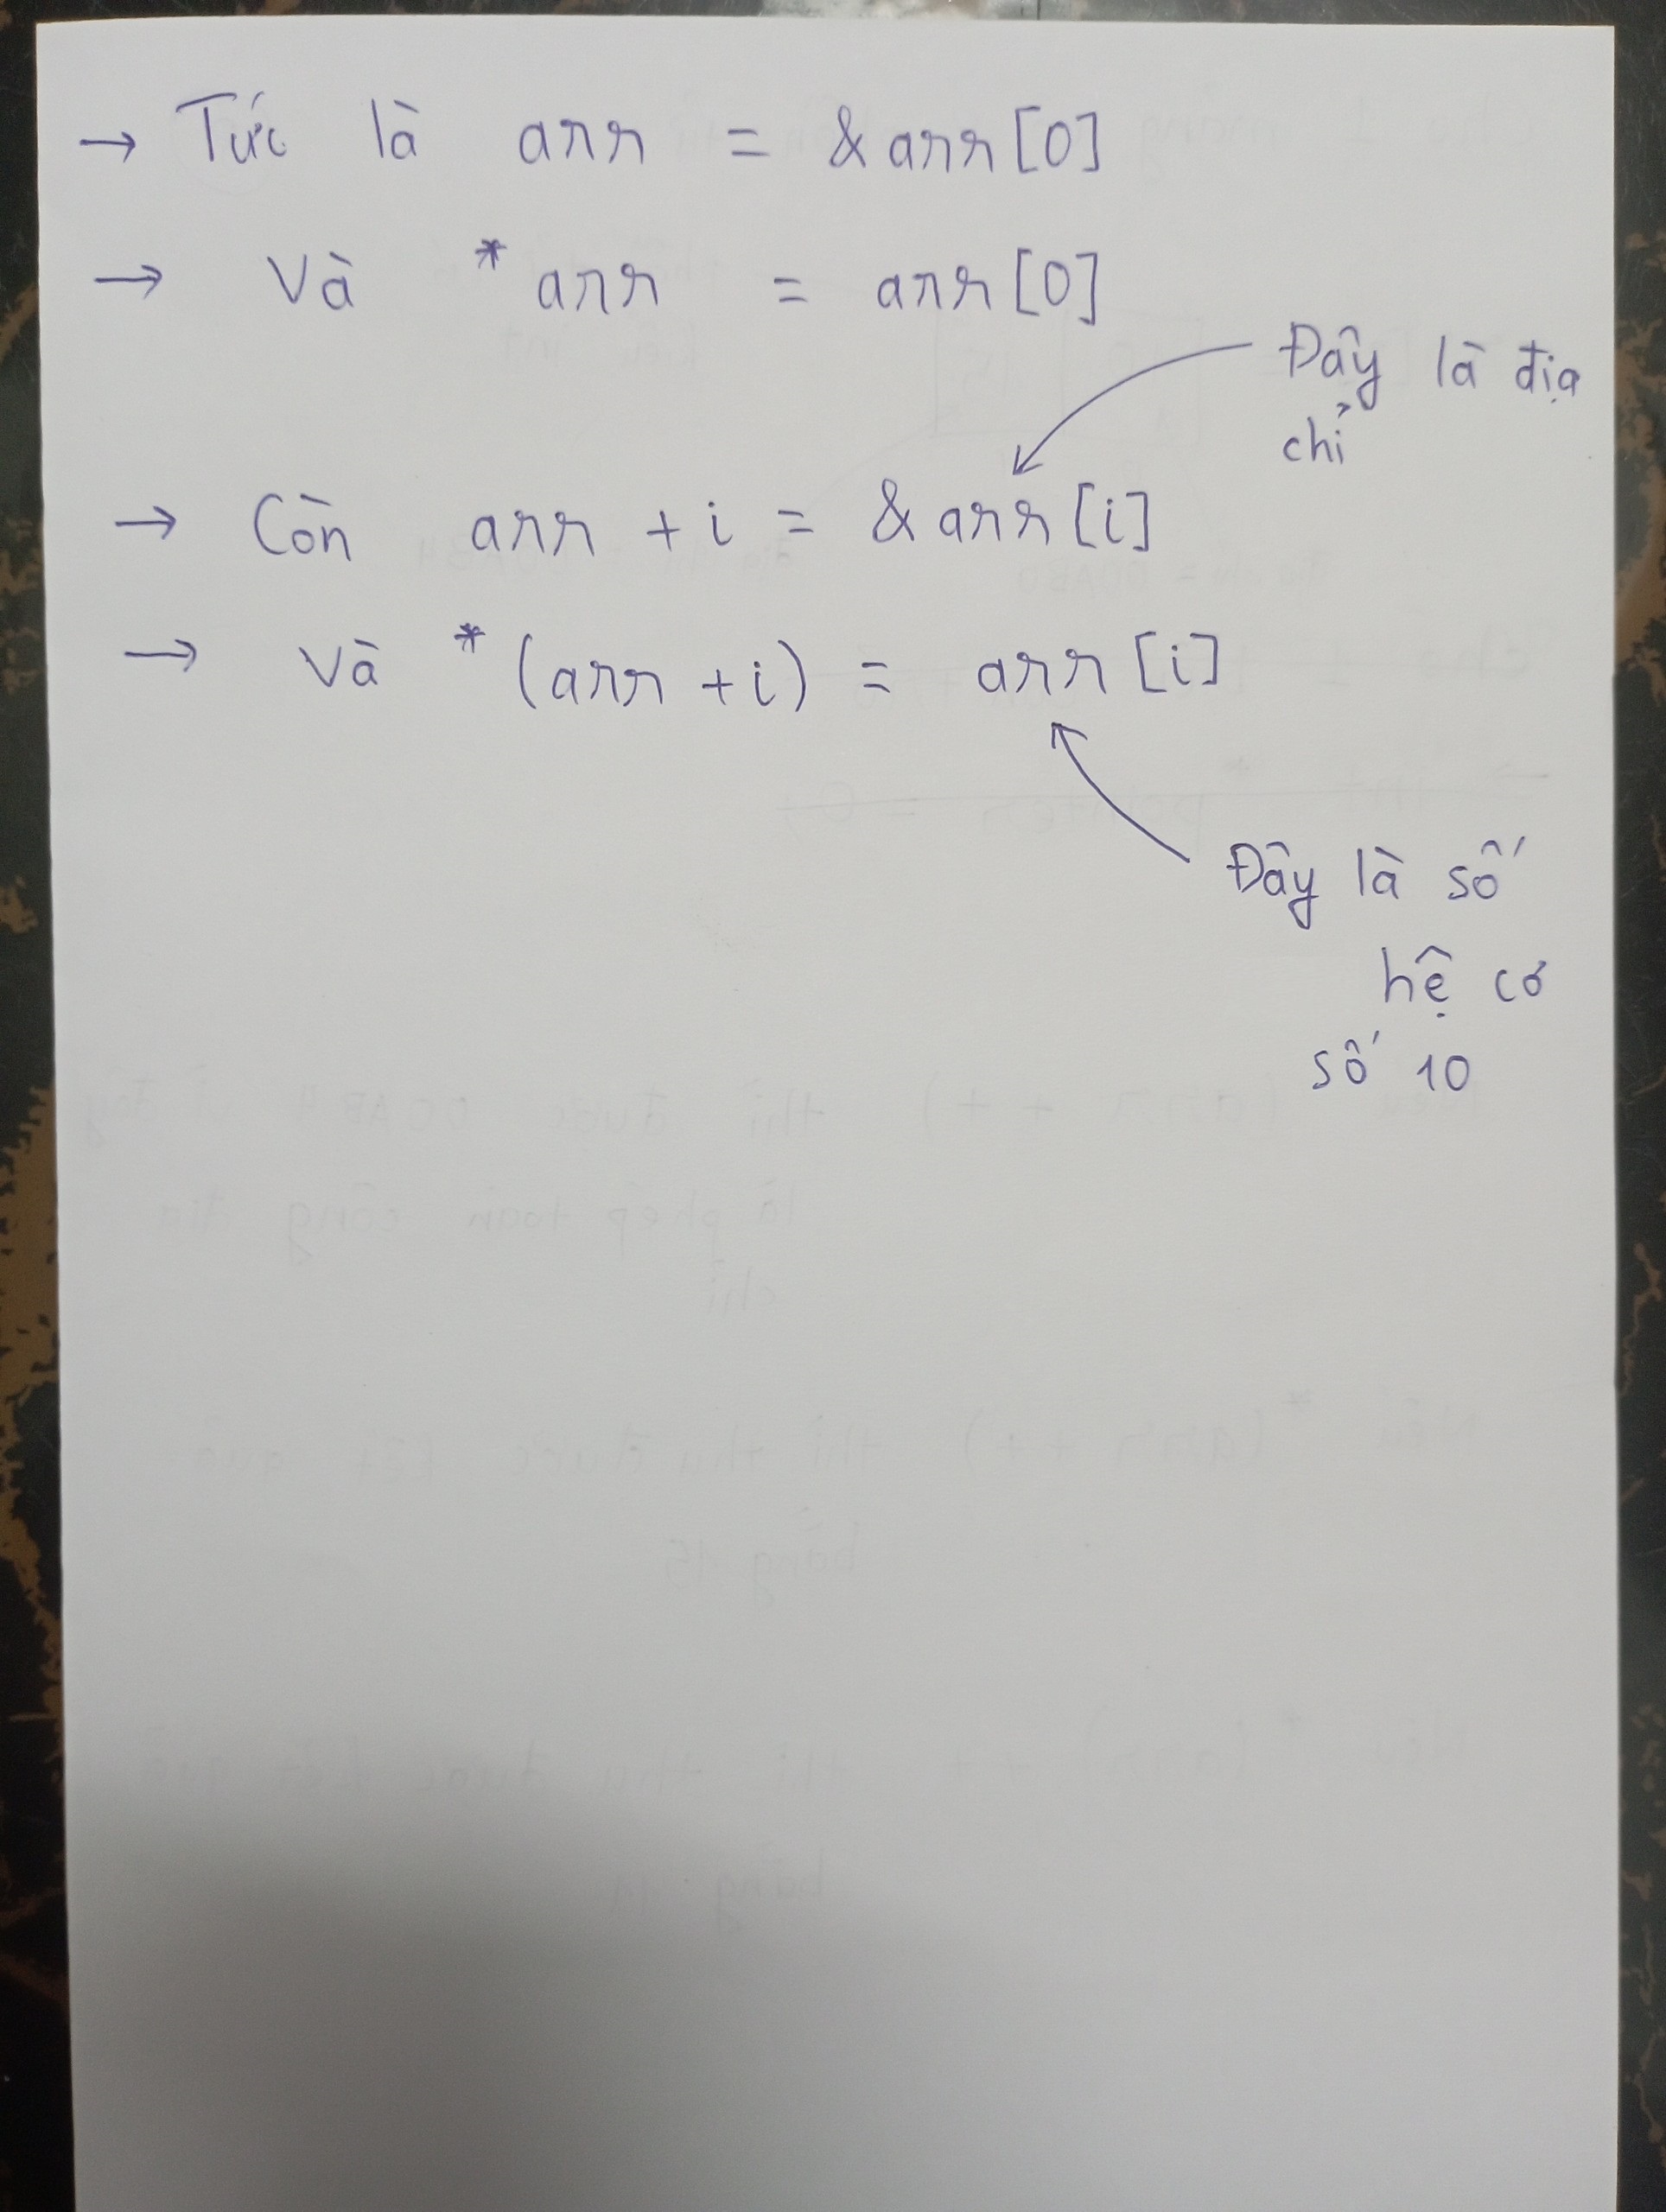 → Tức là arr = &arr[0]
→ Và *arr = arr[0]
Đây là địa
chỉ
→ Còn arr + i = &arr[i]
→ Và *(arr + i) = arr[i]
Đây là số
hệ cơ
số 10